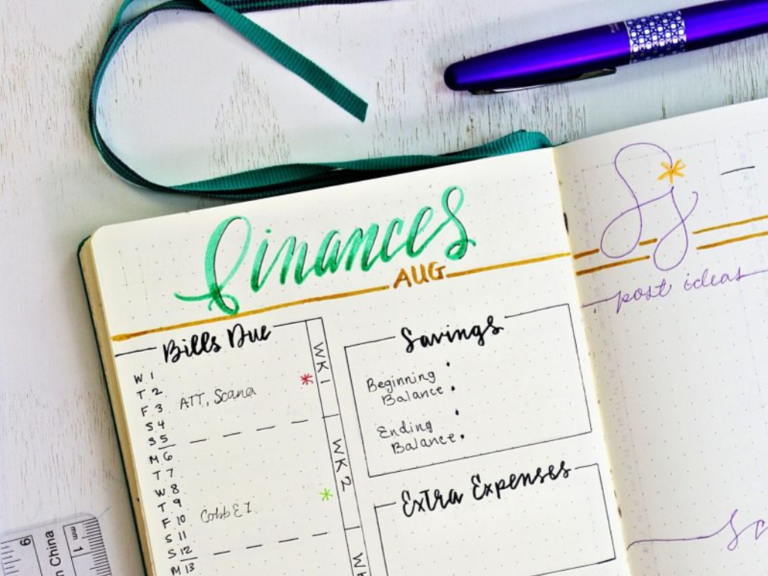 Finances
AUG
Bills Due
WK 1
W 1
T 2
F 3 ATT, Scana
S 4
S 5
M 6
T 7
WK 2
W 8
T 9
F 10
S 11
S 12
M 13
Savings
Beginning
Balance:
Ending
Balance:
Extra Expenses
post ideas
n China
mm 1
6